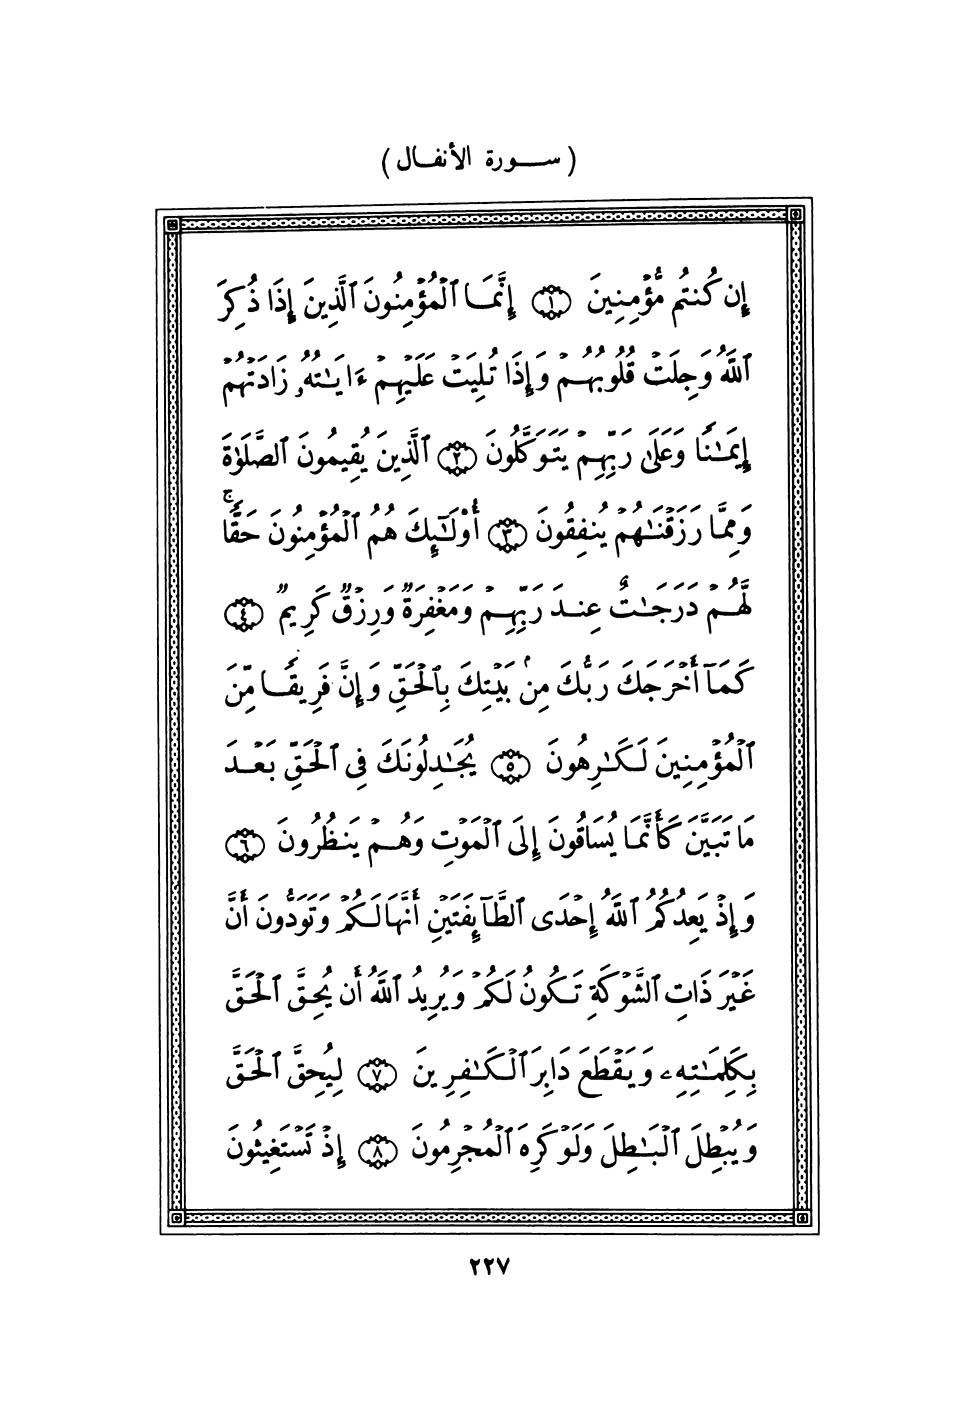 ( سورة الأنفال )
إِن كُنتُم مُّؤْمِنِينَ ١ إِنَّمَا ٱلْمُؤْمِنُونَ ٱلَّذِينَ إِذَا ذُكِرَ
ٱللَّهُ وَجِلَتْ قُلُوبُهُمْ وَإِذَا تُلِيَتْ عَلَيْهِمْ ءَايَـٰتُهُۥ زَادَتْهُمْ
إِيمَـٰنًا وَعَلَىٰ رَبِّهِمْ يَتَوَكَّلُونَ ٢ ٱلَّذِينَ يُقِيمُونَ ٱلصَّلَوٰةَ
وَمِمَّا رَزَقْنَـٰهُمْ يُنفِقُونَ ٣ أُوْلَـٰٓئِكَ هُمُ ٱلْمُؤْمِنُونَ حَقًّاۚ
لَّهُمْ دَرَجَـٰتٌ عِندَ رَبِّهِمْ وَمَغْفِرَةٌ وَرِزْقٌ كَرِيمٌ ٤
كَمَآ أَخْرَجَكَ رَبُّكَ مِنۢ بَيْتِكَ بِٱلْحَقِّ وَإِنَّ فَرِيقًا مِّنَ
ٱلْمُؤْمِنِينَ لَكَـٰرِهُونَ ٥ يُجَـٰدِلُونَكَ فِى ٱلْحَقِّ بَعْدَ
مَا تَبَيَّنَ كَأَنَّمَا يُسَاقُونَ إِلَى ٱلْمَوْتِ وَهُمْ يَنظُرُونَ ٦
وَإِذْ يَعِدُكُمُ ٱللَّهُ إِحْدَى ٱلطَّآئِفَتَيْنِ أَنَّهَا لَكُمْ وَتَوَدُّونَ أَنَّ
غَيْرَ ذَاتِ ٱلشَّوْكَةِ تَكُونُ لَكُمْ وَيُرِيدُ ٱللَّهُ أَن يُحِقَّ ٱلْحَقَّ
بِكَلِمَـٰتِهِۦ وَيَقْطَعَ دَابِرَ ٱلْكَـٰفِرِينَ ٧ لِيُحِقَّ ٱلْحَقَّ
وَيُبْطِلَ ٱلْبَـٰطِلَ وَلَوْ كَرِهَ ٱلْمُجْرِمُونَ ٨ إِذْ تَسْتَغِيثُونَ
٢٢٧